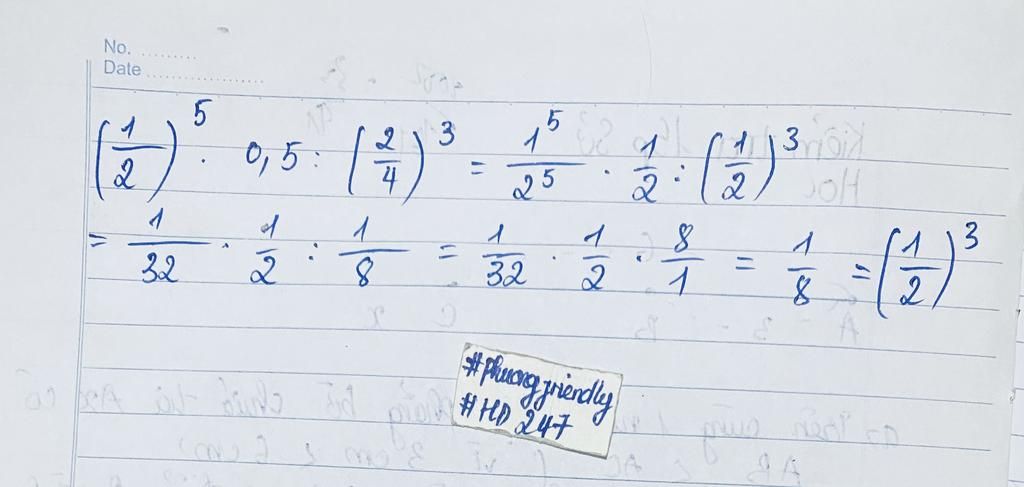 No. ..........
Date ....................
(1/2)^5 . 0,5 : (2/4)^3 = 1^5/2^5 . 1/2 : (1/2)^3
= 1/32 . 1/2 : 1/8 = 1/32 . 1/2 . 8/1 = 1/8 = (1/2)^3
#phuongfriendly
#HD 247